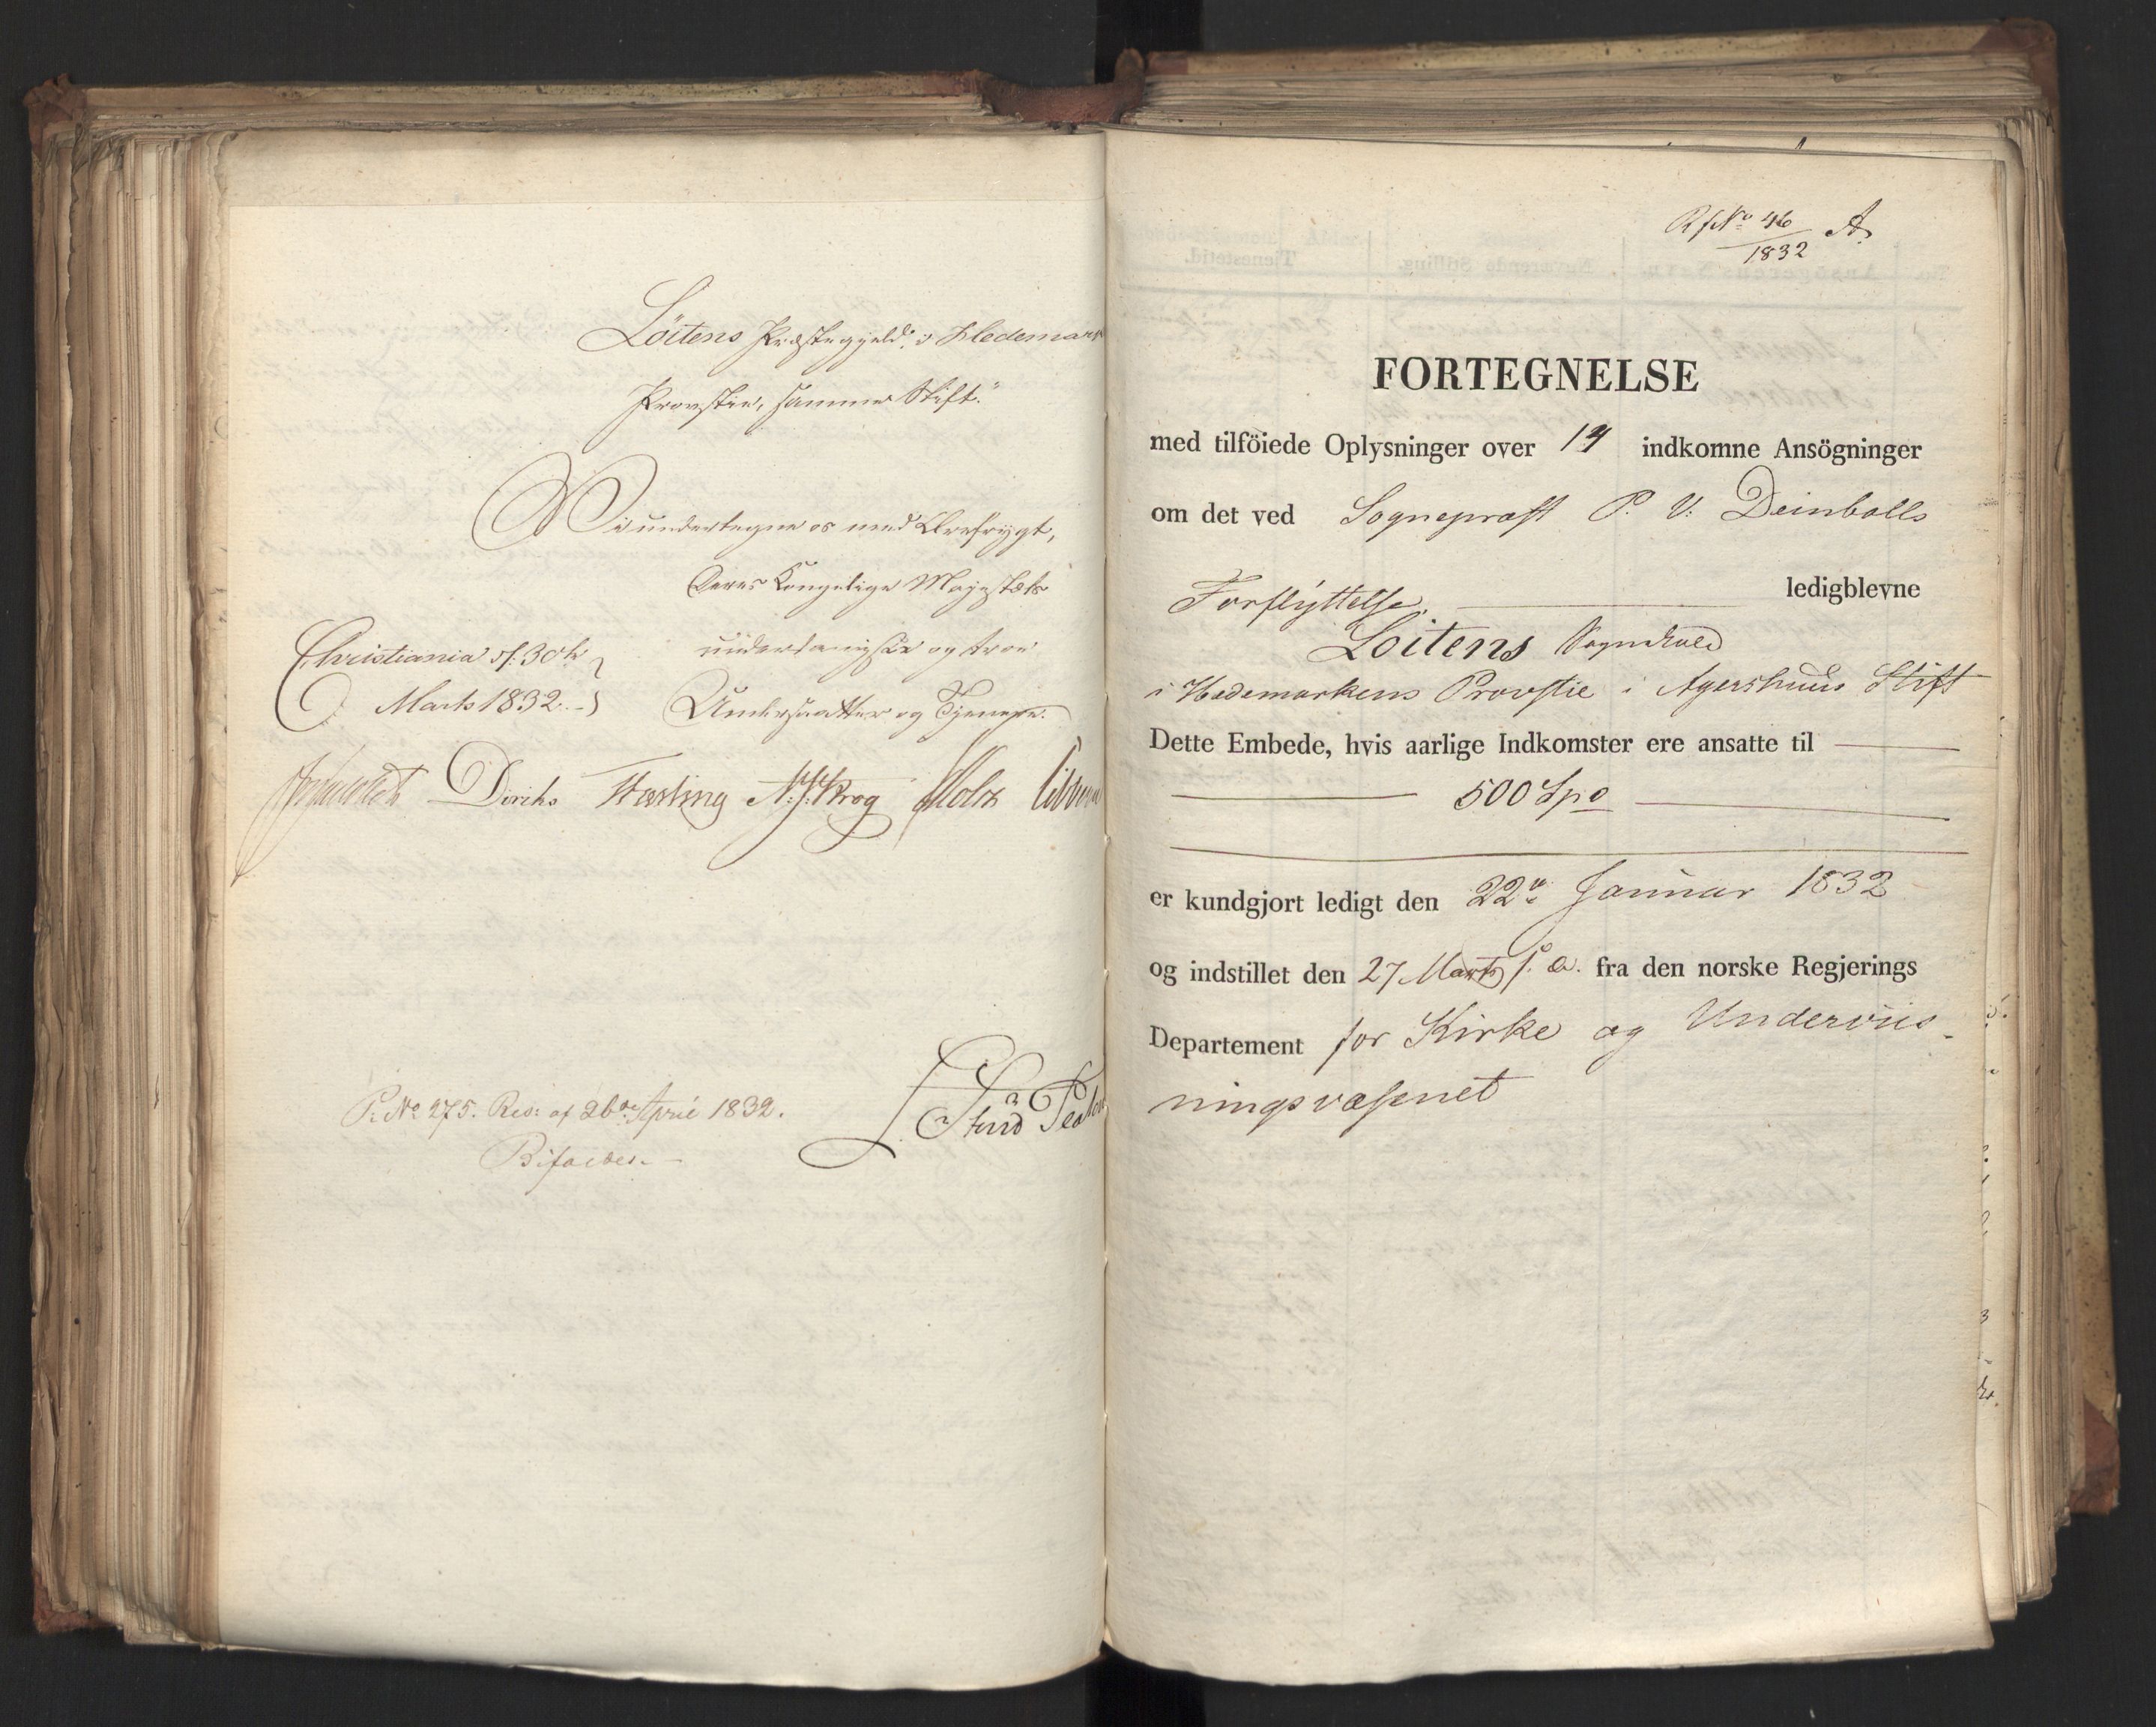 Löitens Præstegjeld i Hedemark
Provstie, samme Stift."
Vi undertegne os med Ærefrygt,
Deres Kongelige Majestæts
underdanigste og troe
Undersaatter og Tjenere.
Christiania d: 30te
Marts 1832.
Diriks N. J. Krog Holst
P. No 275. Res: af 26de April 1832.
Bifaldes.
RfNo 46 A.
1832
FORTEGNELSE
med tilföiede Oplysninger over 14 indkomne Ansögninger
om det ved Sognepræst P. V: Deinbolls
Forflyttelse. ledigblevne
Loitens Sognekald
i Hedemarkens Provstie i Agershuus Stift
Dette Embede, hvis aarlige Indkomster ere ansatte til
500 Spd
er kundgjort ledigt den 22de Januar 1832
og indstillet den 27 Marts s. a. fra den norske Regjerings
Departement for Kirke og Underviis-
ningsvæsenet